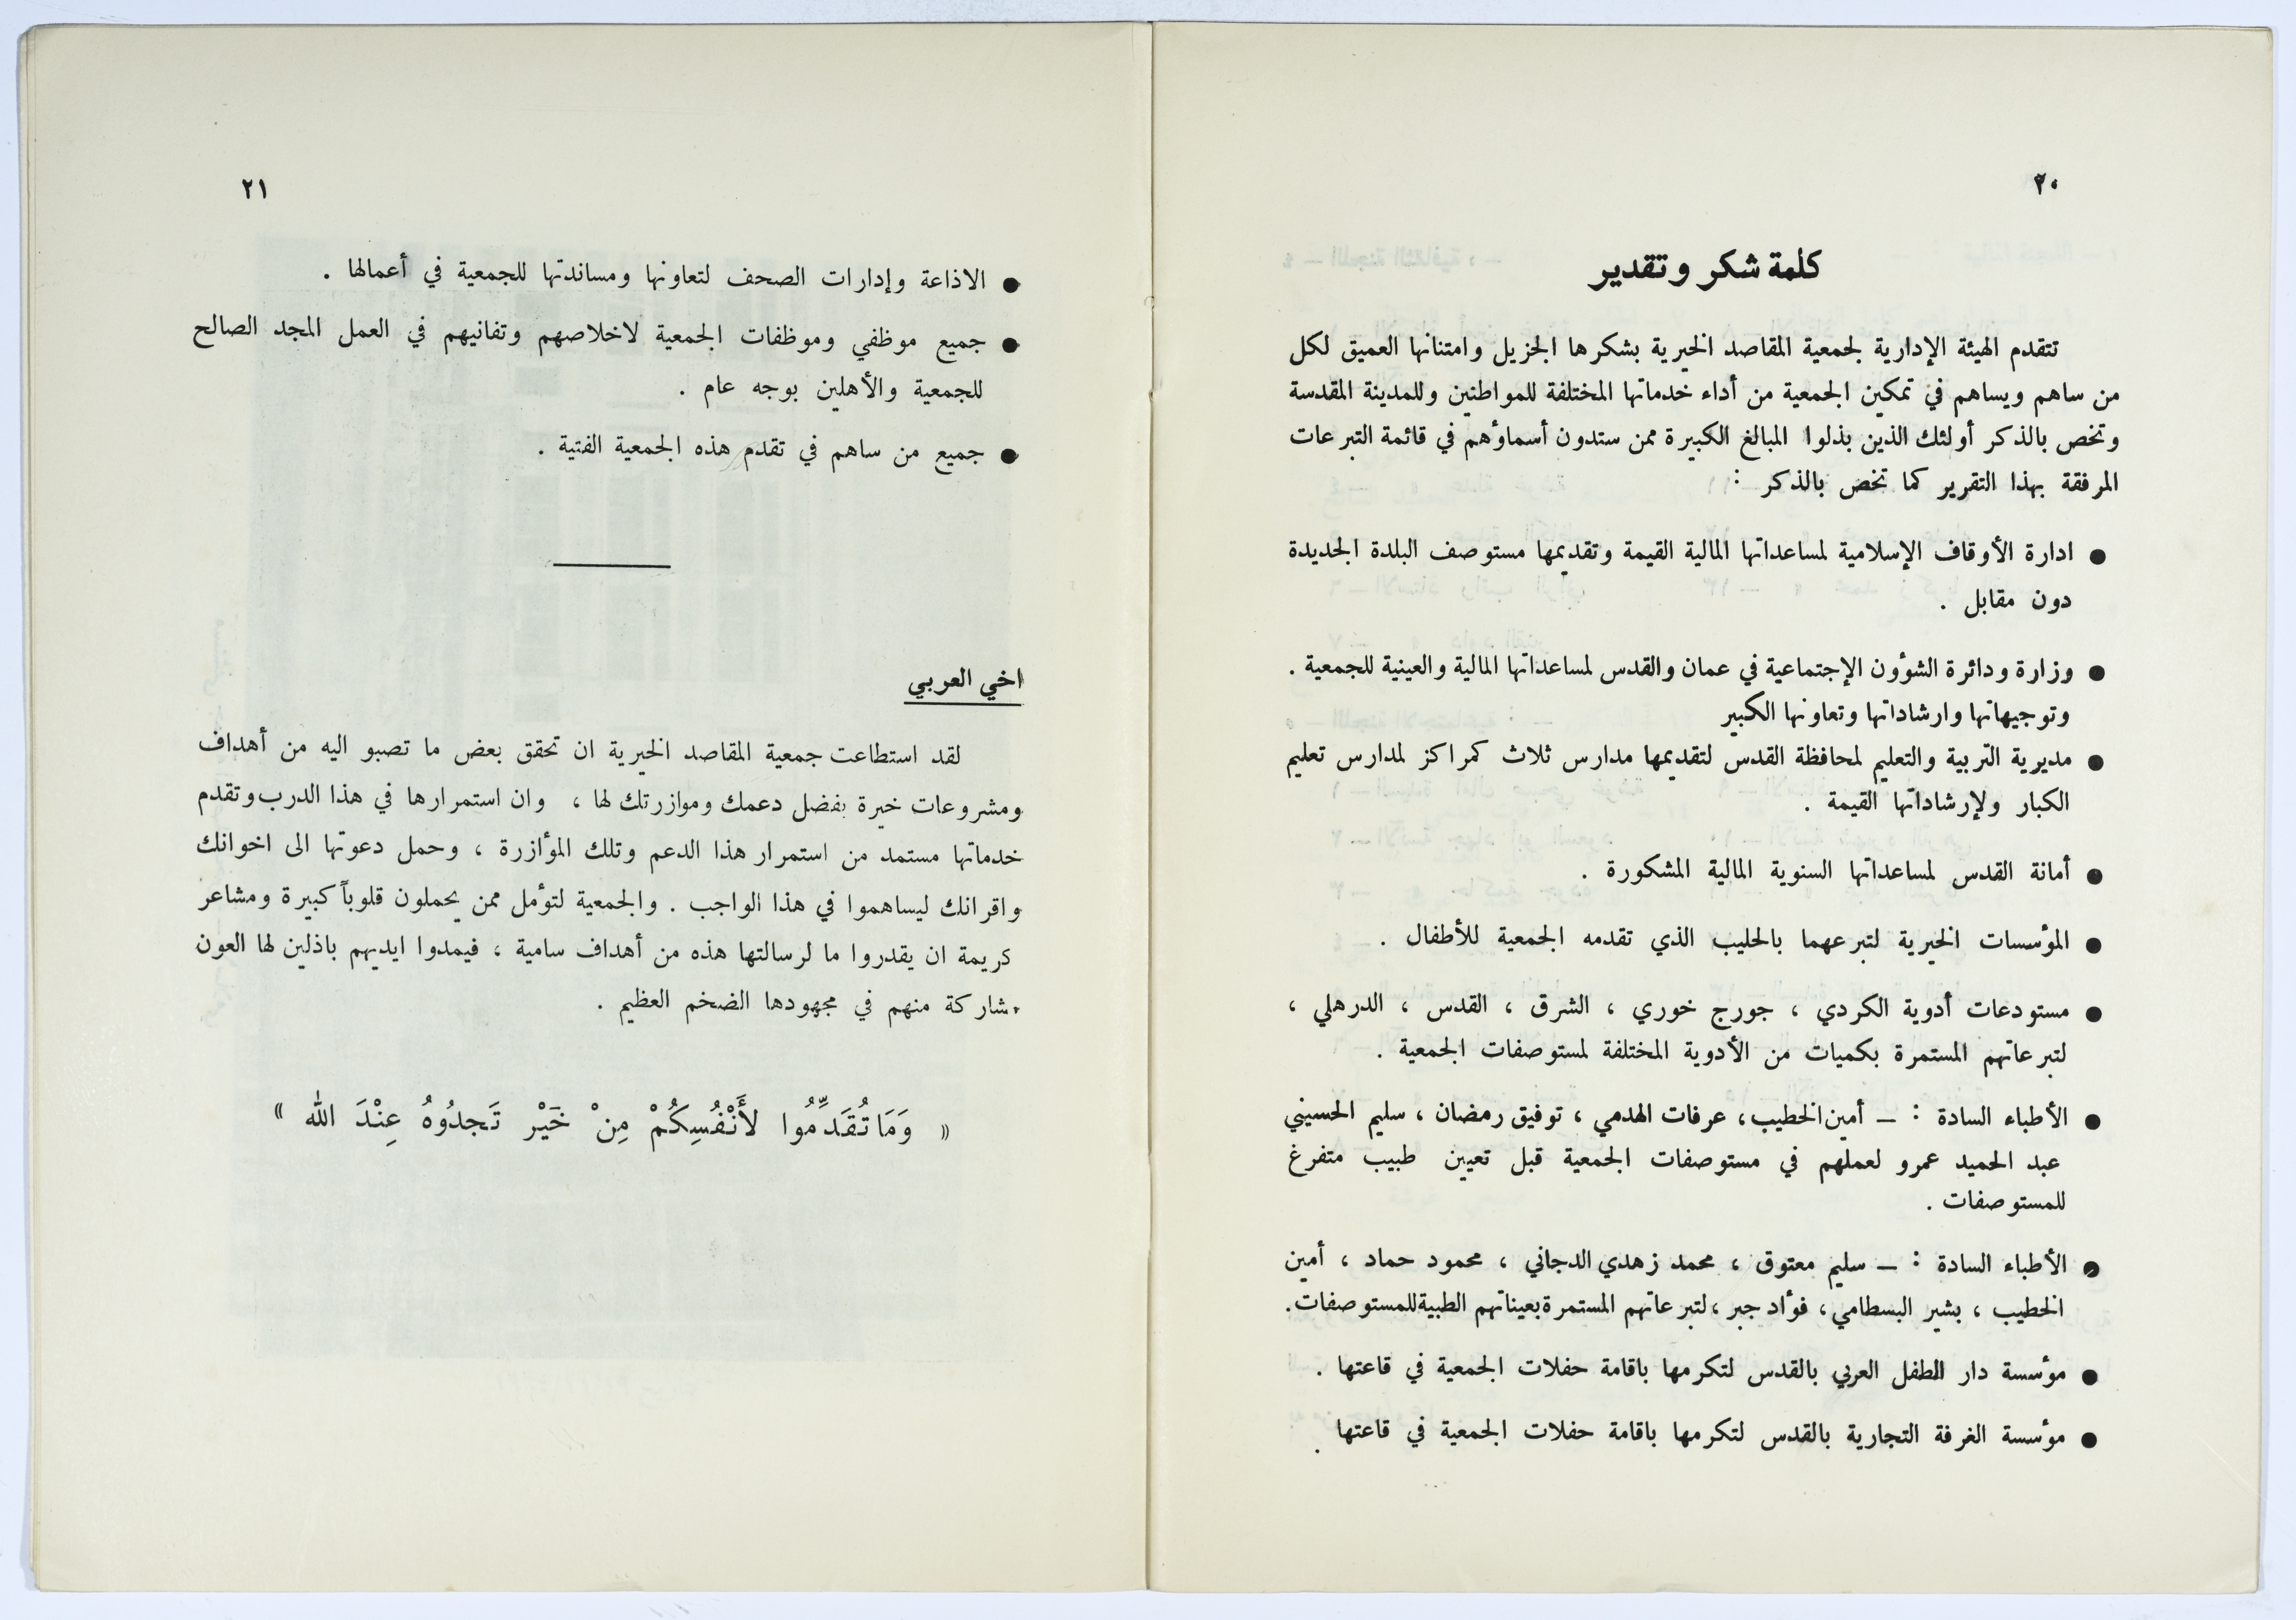 ٢٠
كلمة شكر وتقدير
تتقدم الهيئة الإدارية لجمعية المقاصد الخيرية بشكرها الجزيل وامتنانها العميق لكل
من ساهم ويساهم في تمكين الجمعية من أداء خدماتها المختلفة للمواطنين وللمدينة المقدسة
وتخص بالذكر أولئك الذين بذلوا المبالغ الكبيرة ممن ستدون أسماؤهم في قائمة التبرعات
المرفقة بهذا التقرير كما تخص بالذكر :
● ادارة الأوقاف الإسلامية لمساعداتها المالية القيمة وتقديمها مستوصف البلدة الجديدة
دون مقابل .
● وزارة ودائرة الشؤون الإجتماعية في عمان والقدس لمساعداتها المالية والعينية للجمعية .
وتوجيهاتها وارشاداتها وتعاونها الكبير
● مديرية التربية والتعليم لمحافظة القدس لتقديمها مدارس ثلاث كمراكز لمدارس تعليم
الكبار ولإرشاداتها القيمة .
● أمانة القدس لمساعداتها السنوية المالية المشكورة .
● المؤسسات الخيرية لتبرعهما بالحليب الذي تقدمه الجمعية للأطفال .
● مستودعات أدوية الكردي ، جورج خوري ، الشرق ، القدس ، الدرهلي ،
لتبرعاتهم المستمرة بكميات من الأدوية المختلفة لمستوصفات الجمعية .
● الأطباء السادة : — أمين الخطيب ، عرفات الهدمي ، توفيق رمضان ، سليم الحسيني
عبد الحميد عمرو لعملهم في مستوصفات الجمعية قبل تعيين طبيب متفرغ
للمستوصفات .
● الأطباء السادة : — سليم معتوق ، محمد زهدي الدجاني ، محمود حماد ، أمين
الخطيب ، بشير البسطامي ، فؤاد جبر ، لتبرعاتهم المستمرة بعيناتهم الطبية للمستوصفات .
● مؤسسة دار الطفل العربي بالقدس لتكرمها باقامة حفلات الجمعية في قاعتها .
● مؤسسة الغرفة التجارية بالقدس لتكرمها باقامة حفلات الجمعية في قاعتها .
٢١
● الاذاعة وإدارات الصحف لتعاونها ومساندتها للجمعية في أعمالها .
● جميع موظفي وموظفات الجمعية لاخلاصهم وتفانيهم في العمل المجد الصالح
للجمعية والأهلين بوجه عام .
● جميع من ساهم في تقدم هذه الجمعية الفتية .
اخي العربي
لقد استطاعت جمعية المقاصد الخيرية ان تحقق بعض ما تصبو اليه من أهداف
ومشروعات خيرة بفضل دعمك وموازرتك لها ، وان استمرارها في هذا الدرب وتقدم
خدماتها مستمد من استمرار هذا الدعم وتلك المؤازرة ، وحمل دعوتها الى اخوانك
واقرانك ليساهموا في هذا الواجب . والجمعية لتؤمل ممن يحملون قلوباً كبيرة ومشاعر
كريمة ان يقدروا ما لرسالتها هذه من أهداف سامية ، فيمدوا ايديهم باذلين لها العون
مشاركة منهم في مجهودها الضخم العظيم .
« وَمَا تُقَدِّمُوا لأَنْفُسِكُمْ مِنْ خَيْر تَجدُوهُ عِنْدَ الله »